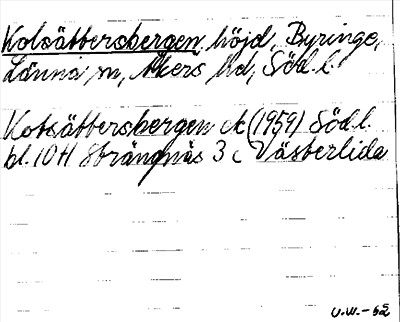 Kolsättersbergen, höjd, Byringe,
Länna sn, Åkers hd, Söd.l.
Kolsättersbergen ek (1959) Söd.l.
bl. 10H Strängnäs 3 c Västerlida
U.W.-62